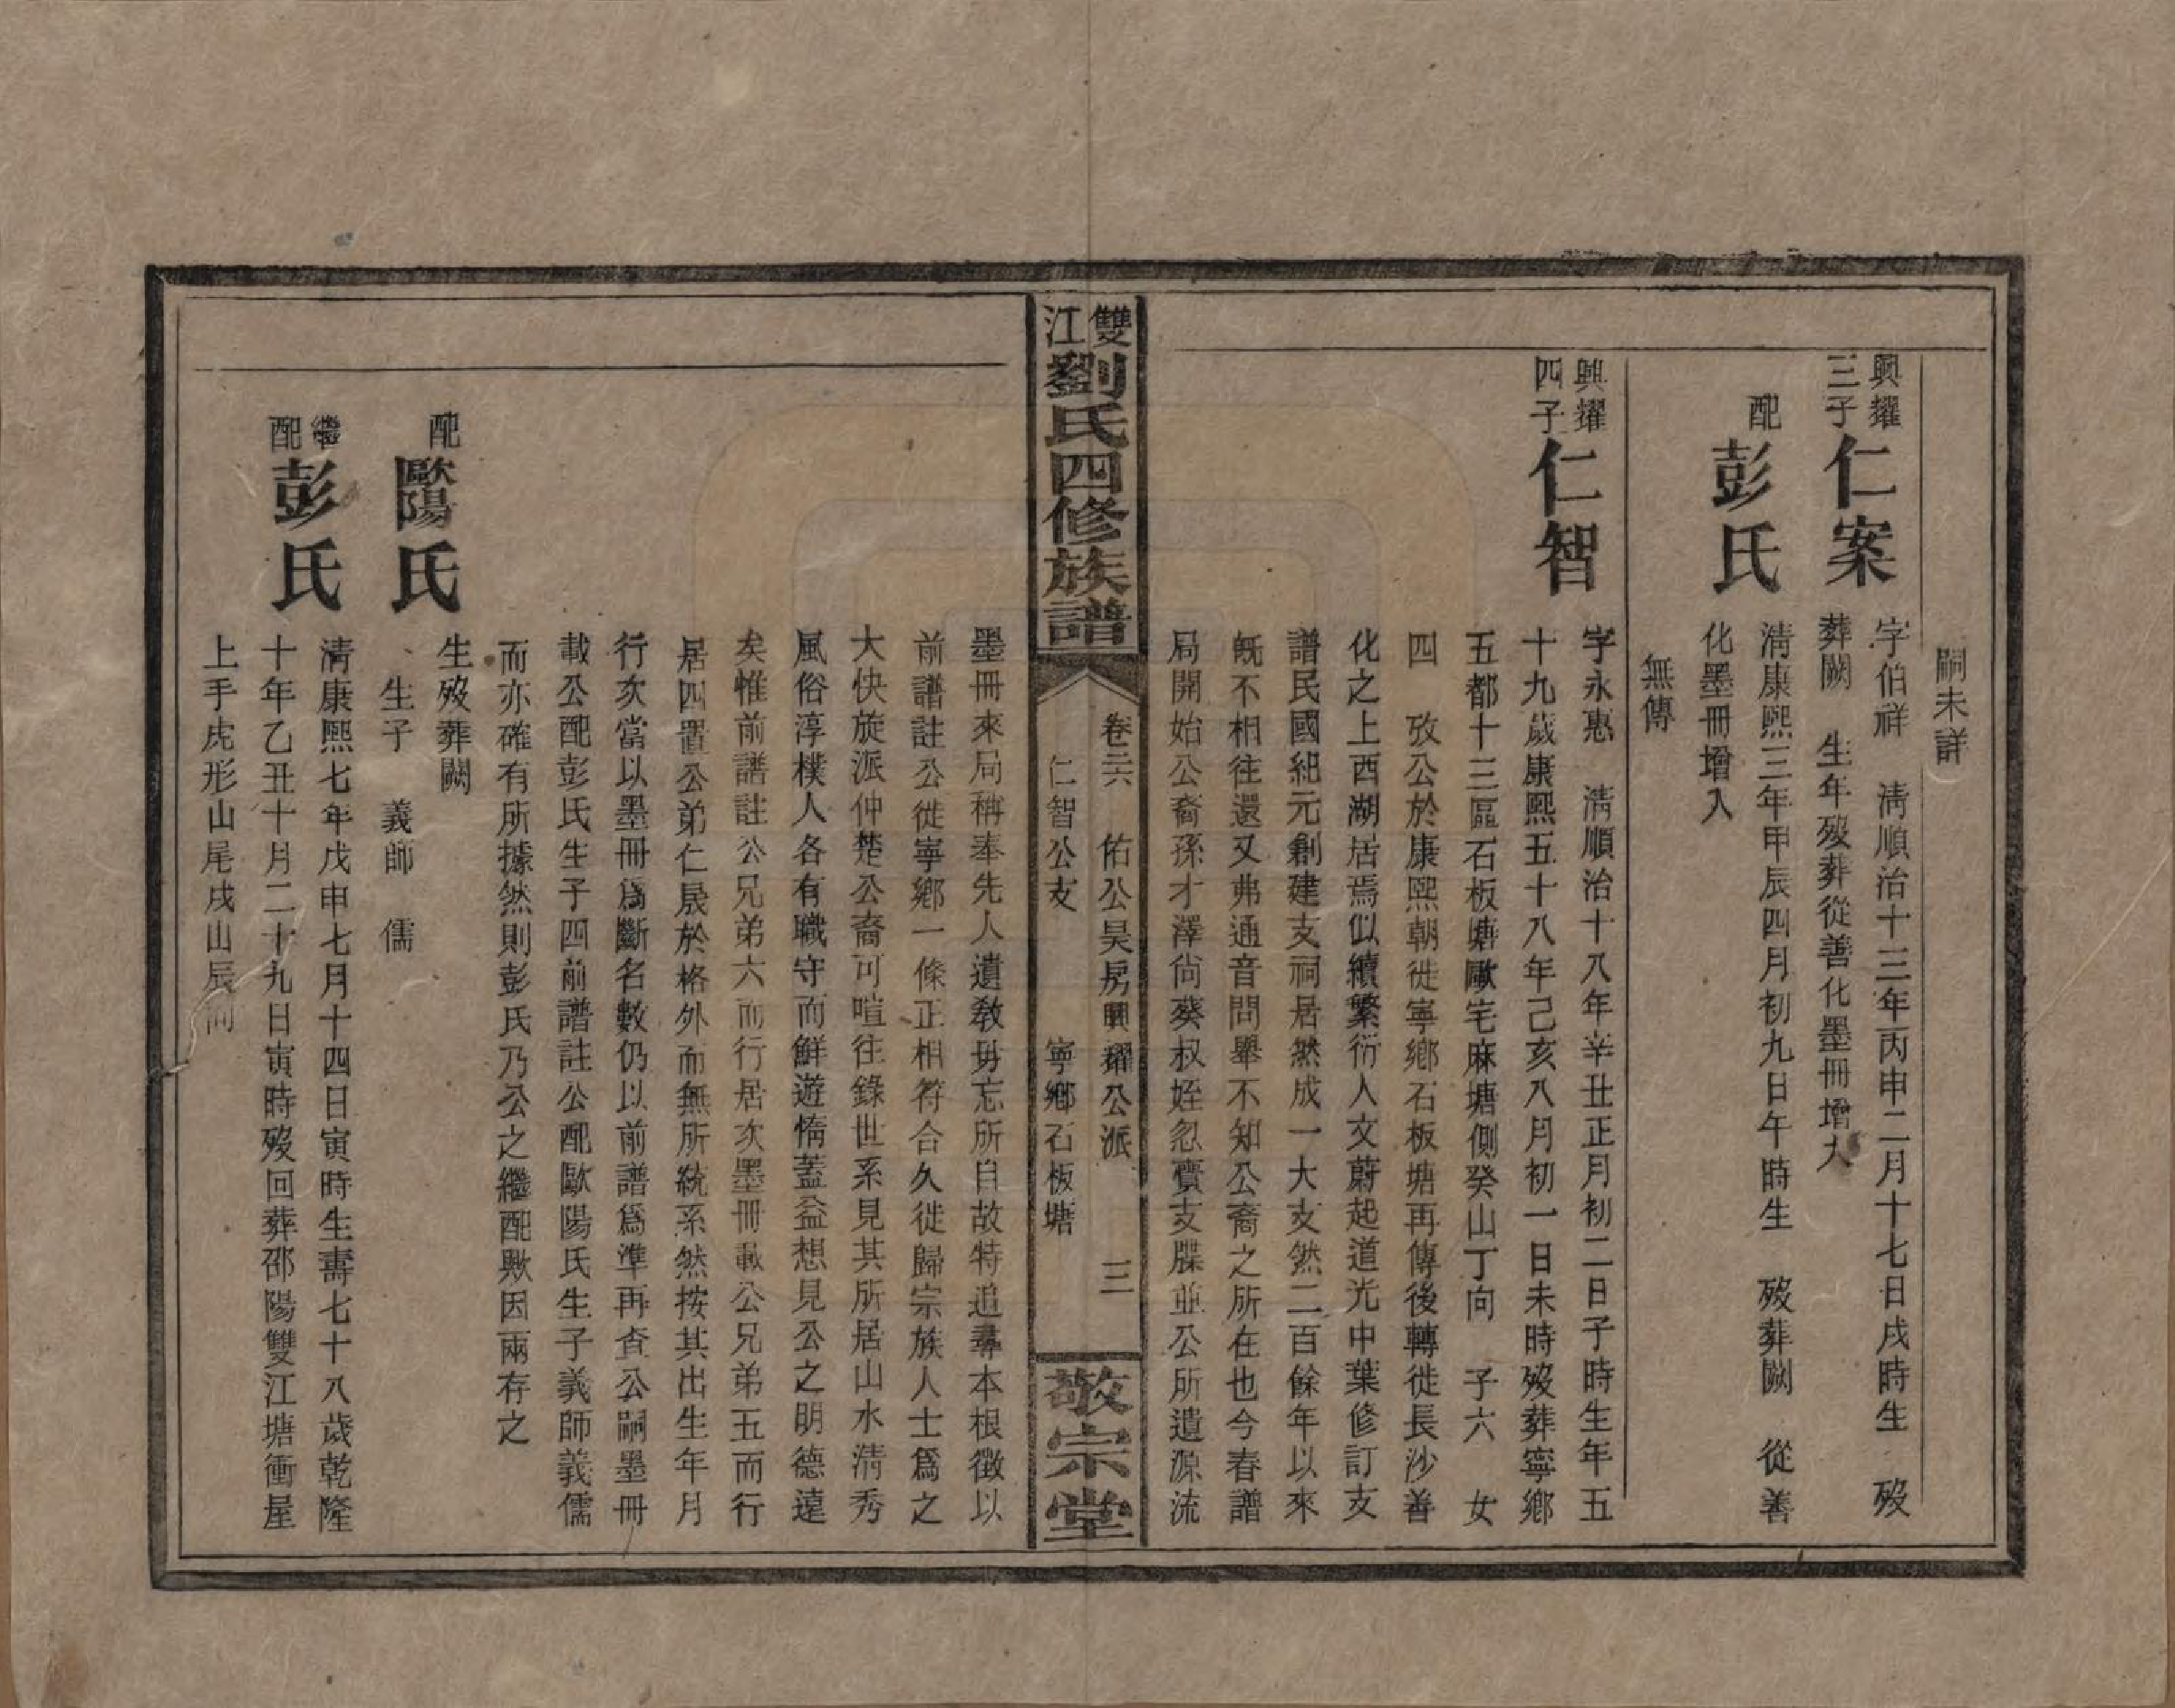 嗣未詳
興耀三子 仁案 字伯祥 清順治十三年丙申二月十七日戌時生 歿
葬闕 生年歿葬從善化墨冊增入
配 彭氏 清康熙三年甲辰四月初九日午時生 歿葬闕 從善
化墨冊增入
無傳
興耀四子 仁智 字永惠 清順治十八年辛丑正月初二日子時生年五
十九歲康熙五十八年己亥八月初一日未時歿葬寧鄉
五都十三區石板塘歐宅麻塘側癸山丁向 子六 女
四 攷公於康熙朝徙寧鄉石板塘再傳後轉徙長沙善
化之上西湖居焉似續繁衍人文蔚起道光中葉修訂支
譜民國紀元創建支祠居然成一大支然二百餘年以來
既不相往還又弗通音問舉不知公裔之所在也今春譜
局開始公裔孫才澤尙葵叔姪忽賫支牒並公所遺源流
雙江劉氏四修族譜
卷三六 佑公昊房興耀公派 三
仁智公支 寧鄉石板塘
敬宗堂
墨冊來局稱奉先人遺敎毋忘所自故特追尋本根徵以
前譜註公徙寧鄉一條正相符合久徙歸宗族人士爲之
大快旋派仲楚公裔可喧往錄世系見其所居山水清秀
風俗淳樸人各有職守而鮮遊惰蓋益想見公之明德遠
矣惟前譜註公兄弟六而行居次墨冊載公兄弟五而行
居四置公弟仁晟於格外而無所統系然按其出生年月
行次當以墨冊爲斷名數仍以前譜爲準再查公嗣墨冊
載公配彭氏生子四前譜註公配歐陽氏生子義師義儒
而亦確有所據然則彭氏乃公之繼配歟因兩存之
配 歐陽氏 生歿葬闕
生子 義師 儒
繼配 彭氏 清康熙七年戊申七月十四日寅時生壽七十八歲乾隆
十年乙丑十月二十九日寅時歿回葬邵陽雙江塘衝屋
上手虎形山尾戌山辰向